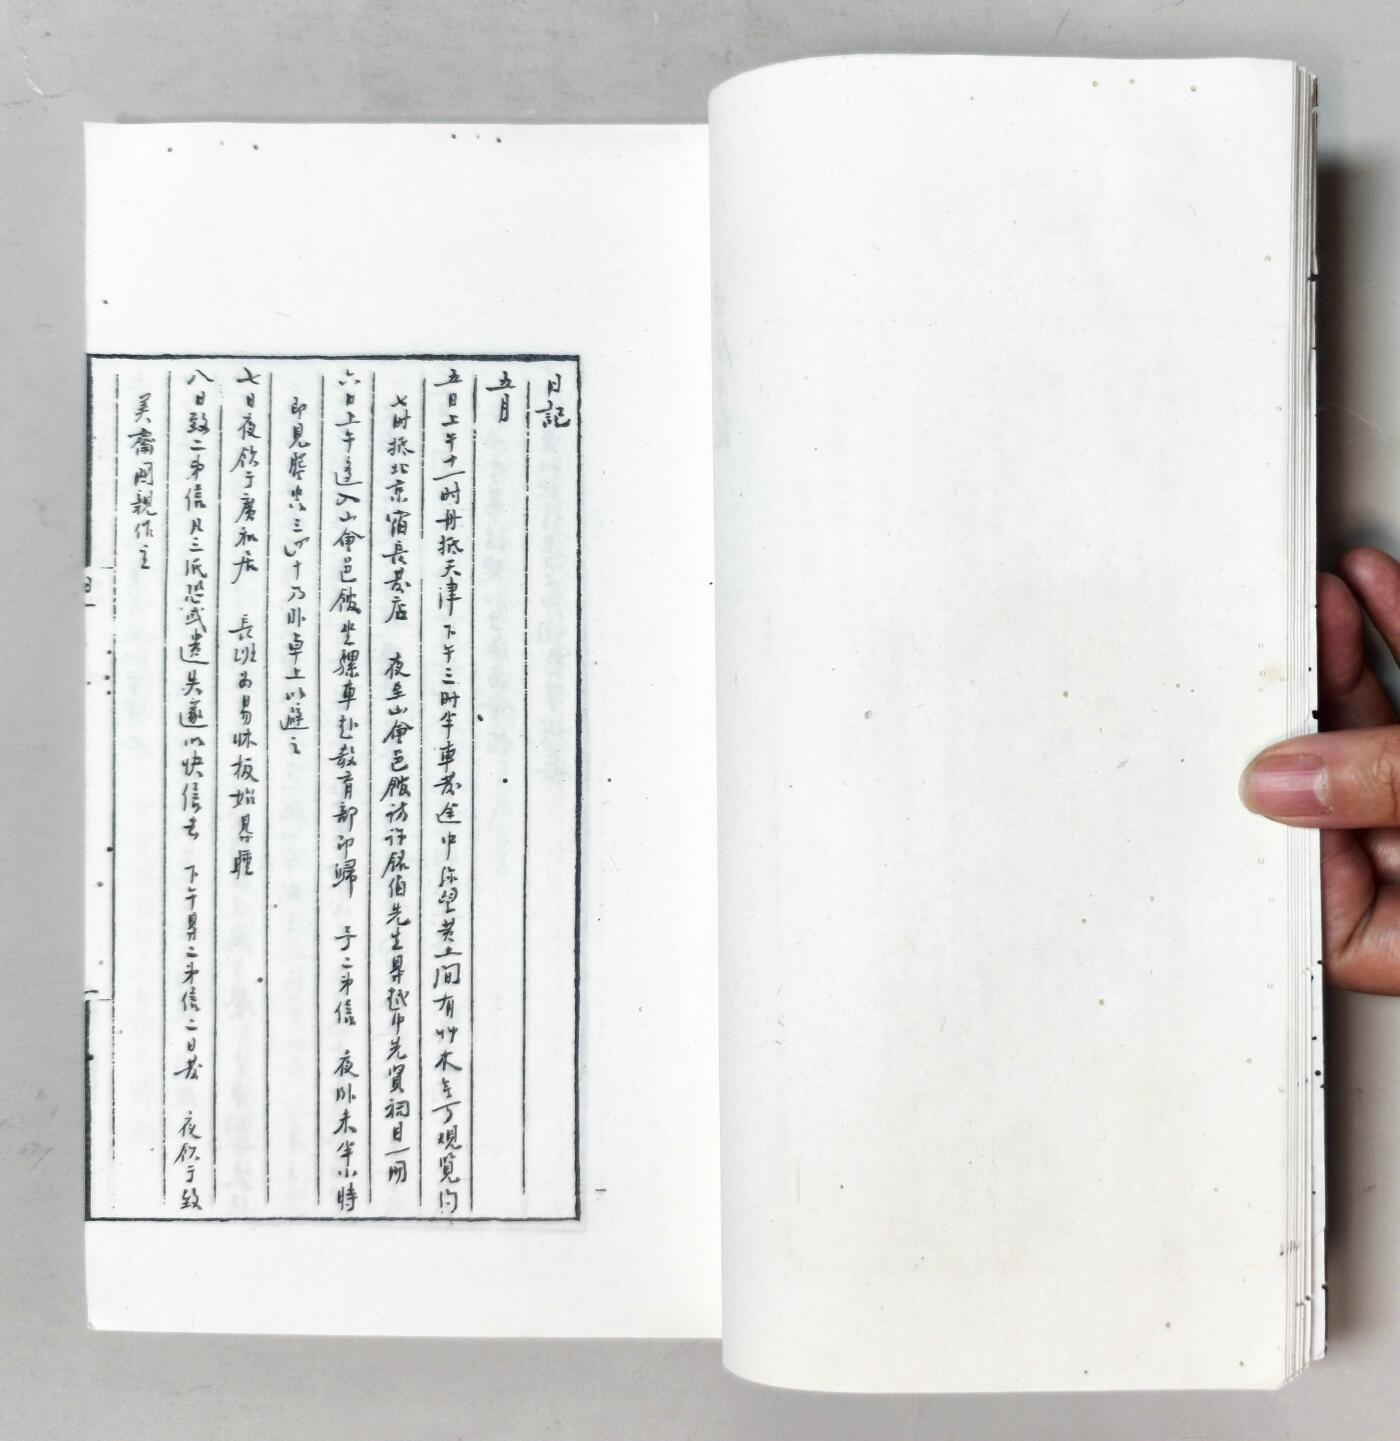 日記
五月
五日上午十一时舟抵天津 下午三时半車發途中弥望黄土间有艸木无可观览约
七时抵北京宿長發店 夜至山會邑館访许銘伯先生㝵越中先賢祠目一册
六日上午迻入山會邑館坐騾車赴教育部即歸 予二弟信 夜卧未半小時
即見蜰虫三四十乃卧卓上以避之
七日夜飲于廣和居 長班为易牀板始㝵睡
八日致二弟信凡三紙恐或遺失遂以快信去 下午㝵二弟信二日發 夜飲于致
美齋国親作主